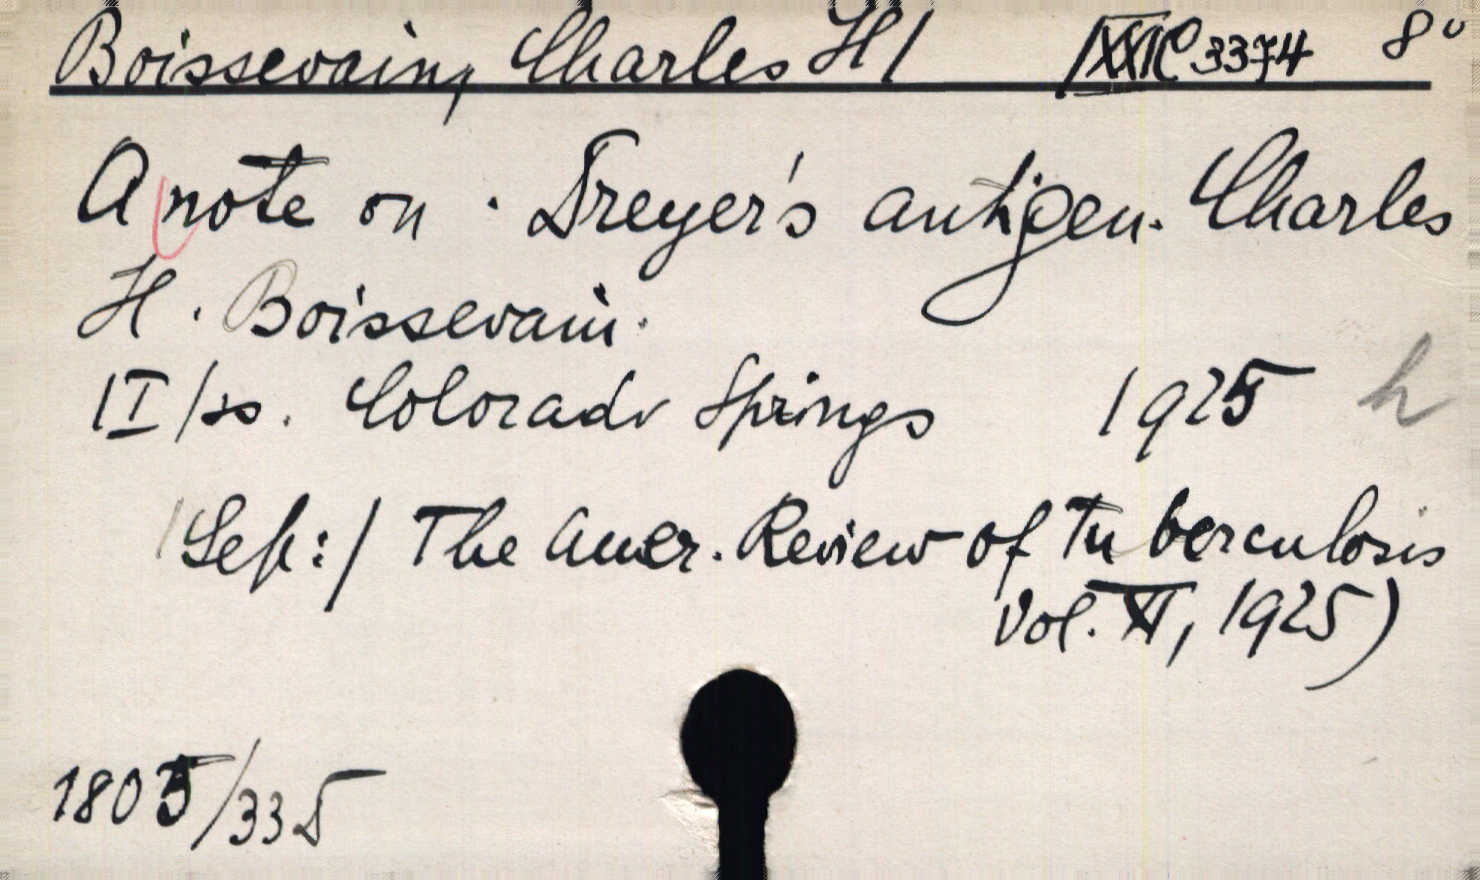 Boissevain, Charles H/ 3374 8°
A note on Dreyer's antigen. Charles
H. Boissevain.
Colorado Springs 1925 h
/Sep:/ The Amer. Review of Tuberculosis
Vol. XI, 1925)
1805/335